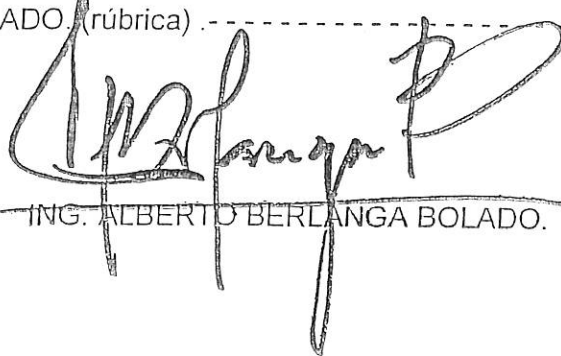 ADO. (rúbrica) .--------------------
ING. ALBERTO BERLANGA BOLADO.